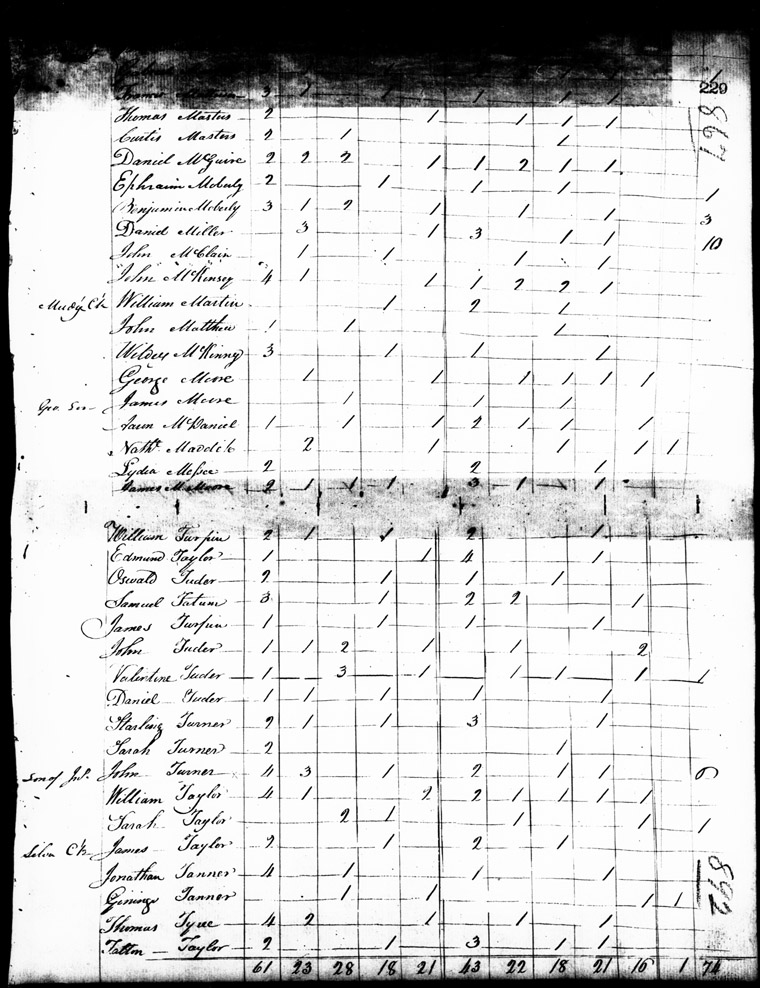 229
867
Thomas Masters 2 1 1 1 1
Curtis Masters 2 1 1
Daniel McGuire 2 2 2 1 1 2 1 1
Ephraim Moberly 2 1 1 1 1
Benjamin Moberly 3 1 2 1 1 1 3
Daniel Miller 3 1 3 1 1 10
John McClain 1 1 1 1
John McKinsey 4 1 1 1 2 2 1
Mudy Ck William Martin 1 2 1
John Matthew 1 1 1
McKinny 3 1 1 1
George Moore 1 1 1 1 1 1
James Moore 1 1 1
McDaniel 1 1 1 2 1 1 1
Nathl Maddik 2 1 1 1 1
Lydia 2 2 1
James 2 1 1 1 3 1 1
William Turpin 2 1 1 2 1
Edmund Taylor 1 1 4 1
Oswald Tuder 2 1 1 1
Samuel Tatum 3 1 2 2 1
James Turpin 1 1 1 1
John Tuder 1 1 2 1 1 2
Valentine Tuder 1 3 1 1 1 1 1
Daniel Tuder 1 1 1 1 1
Starling Turner 2 1 1 3 1
Sarah Turner 2 1
Son of Jno. John Turner 4 3 1 2 1 1 6
William Taylor 4 1 2 2 1 1 1 1
Sarah Taylor 2 1 1 1 1
Silva Ck James Taylor 2 1 2 1
Jonathan Tanner 4 1 1 1
Tanner 1 1 1 1
Thomas Tyree 4 2 1 1 1
Tatton Taylor 2 1 3 1 1
892
61 23 28 18 21 43 22 18 21 16 1 74